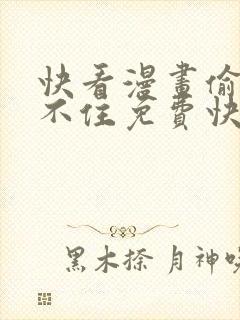 快看漫畫偷
不住免費快
黑木捺 月神